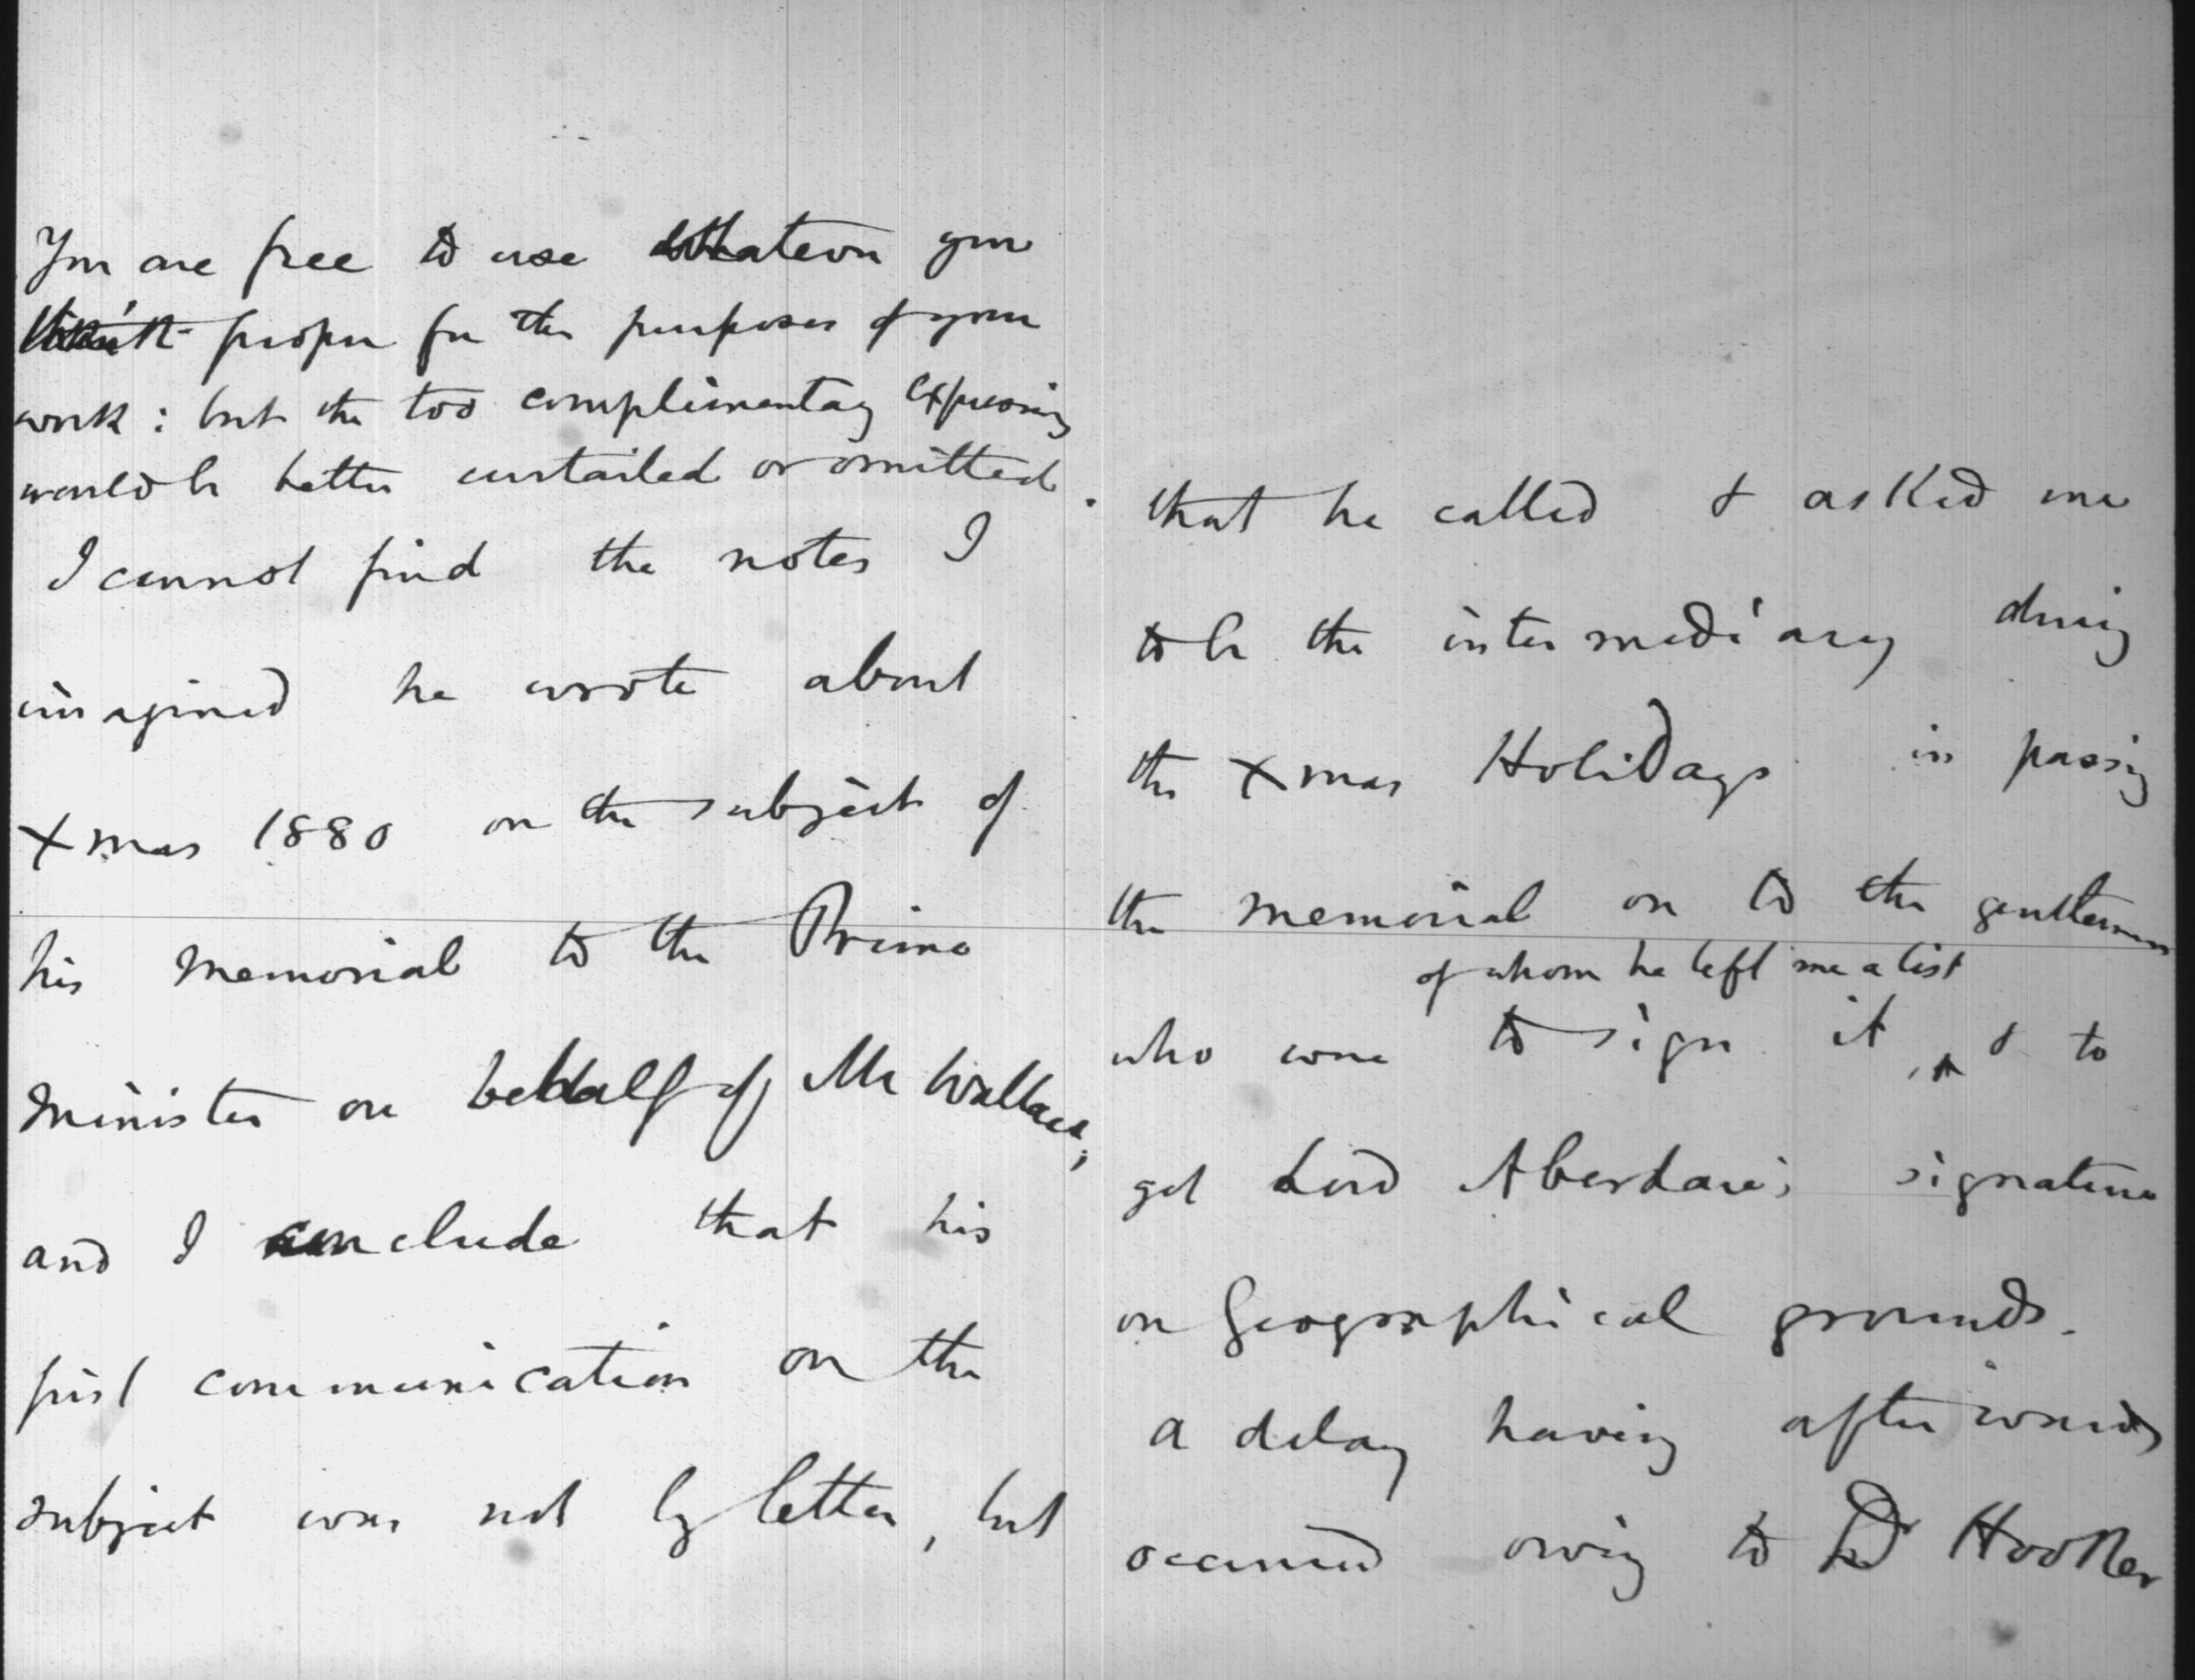 You are free to use whatever you
think proper for the purposes of your
work : but the too complimentary expressions
would be better curtailed or omitted.
I cannot find the notes I
imagined he wrote about
Xmas 1880 on the subject of
his Memorial to the Prime
Minister on behalf of Mr Wallace,
and I conclude that his
first communication on the
subject was not by letter, but
that he called & asked me
to be the intermediary during
the Xmas Holidays in passing
the Memorial on to the gentlemen
of whom he left me a list
who were to sign it, ^ & to
get Lord Aberdare's signature
on Geographical grounds.
a delay having afterwards
occurred owing to Dr Hooker